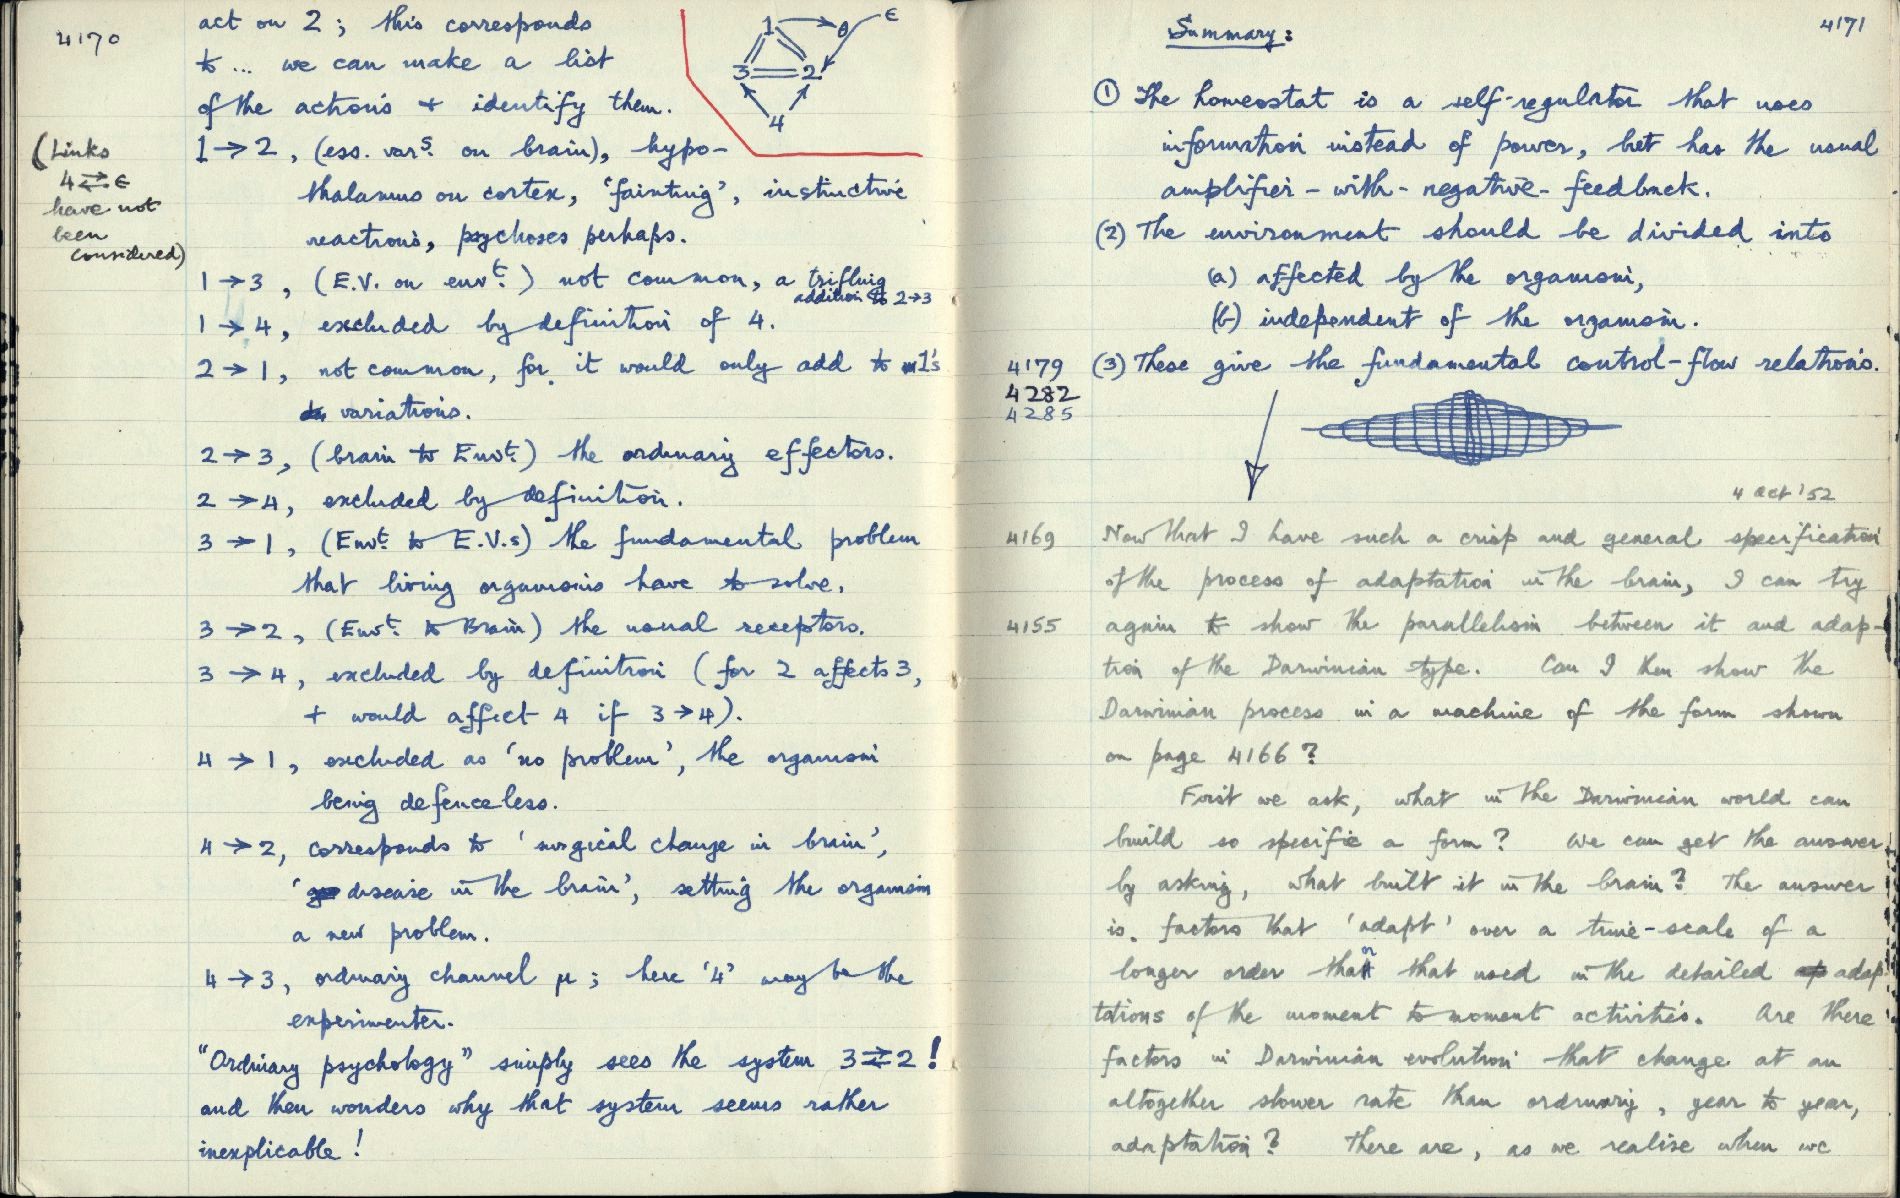 4170
act on 2 ; this corresponds
to ... we can make a list
of the actions + identify them.
1 θ ε
3 2
4
(Links
4 ⇄ ε
have not
been
considered)
1 → 2 , (ess. vars. on brain), hypo-
thalamus on cortex, 'fainting', instinctive
reactions, psychoses perhaps.
1 → 3 , (E.V. on envt.) not common, a trifling
addition to 2→3
1 → 4, excluded by definition of 4.
2 → 1, not common, for it would only add to 1's
variations.
2 → 3, (brain to Envt.) the ordinary effectors.
2 → 4, excluded by definition.
3 → 1, (Envt. to E.V.s) the fundamental problem
that living organisms have to solve.
3 → 2, (Envt. to Brain) the usual receptors.
3 → 4, excluded by definition (for 2 affects 3,
+ would affect 4 if 3→4).
4 → 1, excluded as 'no problem', the organism
being defenceless.
4 → 2, corresponds to 'surgical change in brain',
'disease in the brain', setting the organism
a new problem.
4 → 3, ordinary channel μ ; here '4' may be the
experimenter.
"Ordinary psychology" simply sees the system 3 ⇄ 2 !
and then wonders why that system seems rather
inexplicable !
4171
Summary:
① The homeostat is a self-regulator that uses
information instead of power, but has the usual
amplifier-with-negative-feedback.
(2) The environment should be divided into
(a) affected by the organism,
(b) independent of the organism.
4179 (3) These give the fundamental control-flow relations.
4282
4285
4 Oct '52
4169 Now that I have such a crisp and general specification
of the process of adaptation in the brain, I can try
4155 again to show the parallelism between it and adap-
tion of the Darwinian type. Can I then show the
Darwinian process in a machine of the form shown
on page 4166 ?
First we ask, what in the Darwinian world can
build so specific a form ? We can get the answer
by asking, what built it in the brain ? The answer
is, factors that 'adapt' over a time-scale of a
longer order than that used in the detailed adap
tations of the moment to moment activities. Are there
factors in Darwinian evolution that change at an
altogether slower rate than ordinary, year to year,
adaptation ? There are, as we realise when we